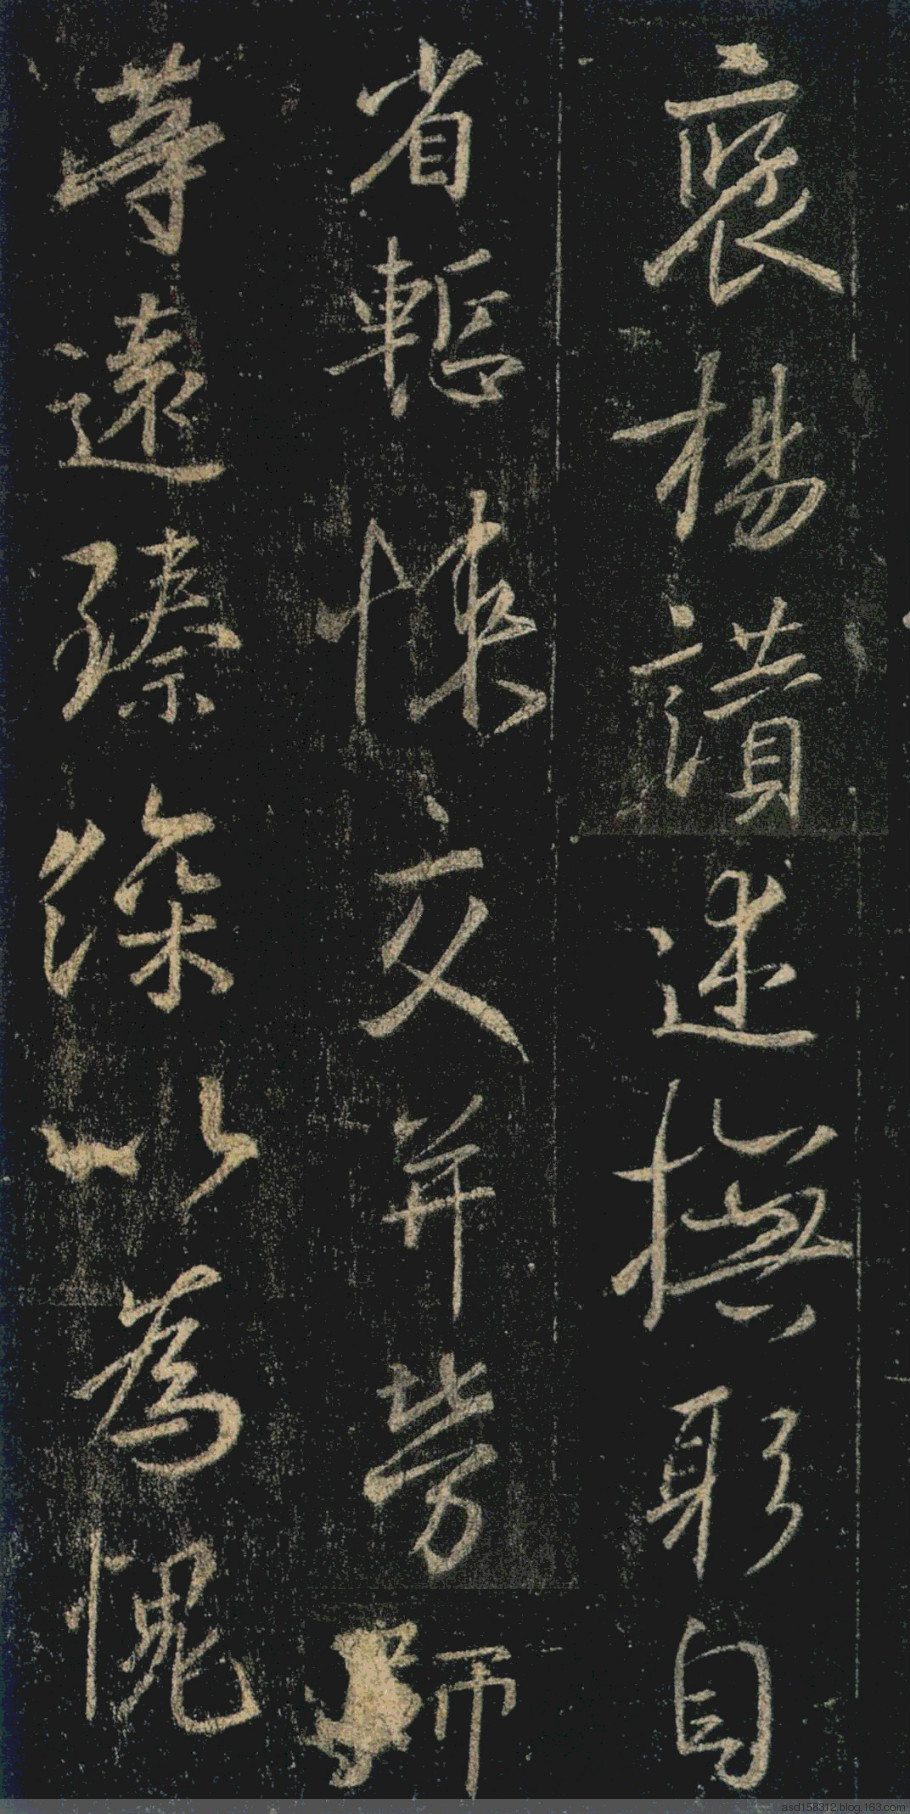 褒揚讃述撫躬自
省慙悚交并勞師
等遠臻深以為愧
asd158312.blog.163.com